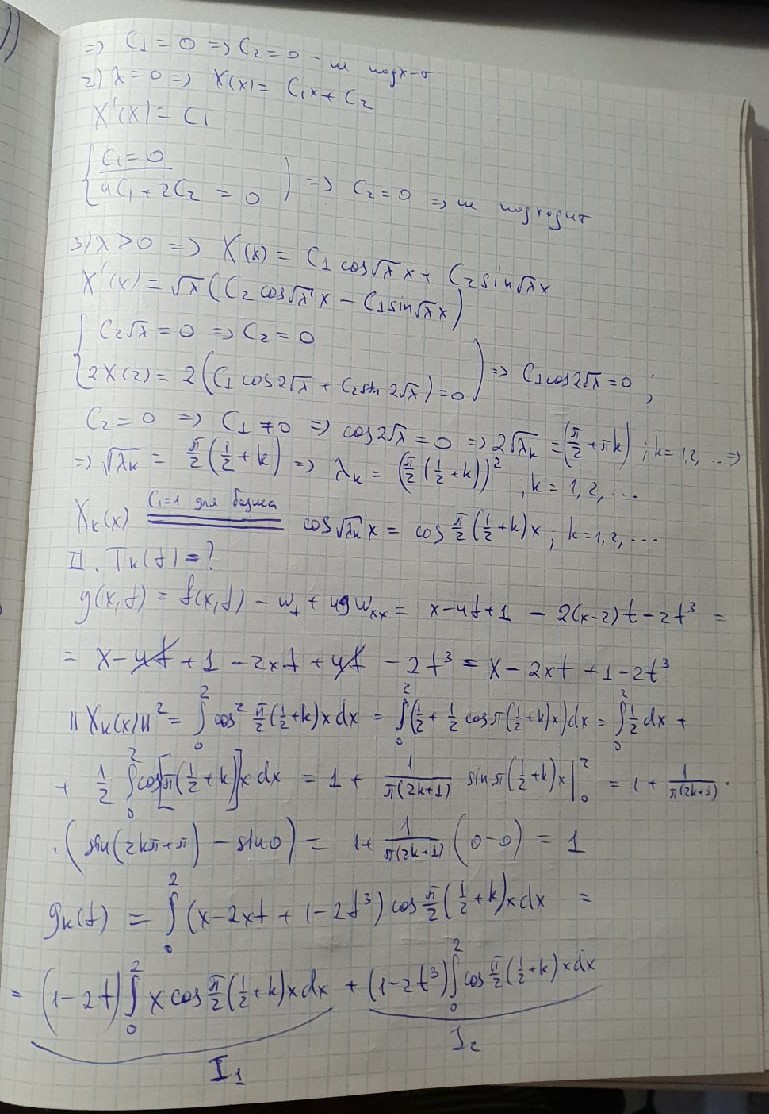 => C₁ = 0 => C₂ = 0 - не подх-т
2) λ = 0 => X(x) = C₁x + C₂
X'(x) = C₁
{ C₁ = 0
{ 4C₁ + 2C₂ = 0 } => C₂ = 0 => не подходит
3) λ > 0 => X(x) = C₁ cos√λ x + C₂ sin√λ x
X'(x) = √λ (C₂ cos√λ x - C₁ sin√λ x)
{ C₂√λ = 0 => C₂ = 0
{ 2X(2) = 2(C₁ cos2√λ + C₂ sin2√λ) = 0 } => C₁ cos2√λ = 0 ;
C₂ = 0 => C₁ ≠ 0 => cos2√λ = 0 => 2√λₖ = (π/2 + πk) ; k = 1,2, ... =>
=> √λₖ = π/2 (1/2 + k) => λₖ = (π/2 (1/2 + k))², k = 1, 2, ...
Xₖ(x) = C₁=1 для базиса cos√λₖ x = cos π/2 (1/2 + k) x ; k = 1, 2, ...
II. Tₖ(t) = ?
g(x,t) = f(x,t) - wₜ + 49wₓₓ = x - 4t + 1 - 2(x-2)t - 2t³ =
= x - 4t + 1 - 2xt + 4t - 2t³ = x - 2xt + 1 - 2t³
||Xₖ(x)||² = ∫₀² cos² π/2 (1/2 + k) x dx = ∫₀² (1/2 + 1/2 cos π(1/2 + k) x) dx = ∫₀² 1/2 dx +
+ 1/2 ∫₀² cos[π(1/2 + k)] x dx = 1 + 1/(π(2k+1)) sin π(1/2 + k) x |₀² = 1 + 1/(π(2k+1)) ·
· (sin(2kπ + π) - sin0) = 1 + 1/(π(2k+1)) (0 - 0) = 1
gₖ(t) = ∫₀² (x - 2xt + 1 - 2t³) cos π/2 (1/2 + k) x dx =
= (1 - 2t) ∫₀² x cos π/2 (1/2 + k) x dx + (1 - 2t³) ∫₀² cos π/2 (1/2 + k) x dx
I₁ I₂